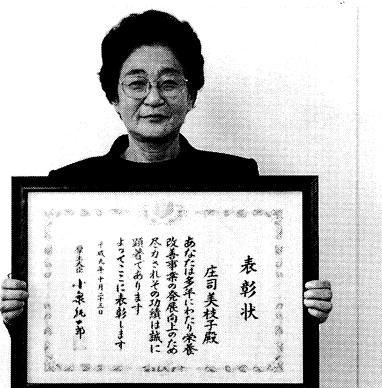 表彰状
庄司美枝子殿
あなたは多年にわたり栄養
改善事業の発展向上のため
尽力されその功績は誠に
顕著であります
よってここに表彰します
平成九年十月二十三日
厚生大臣 小泉純一郎